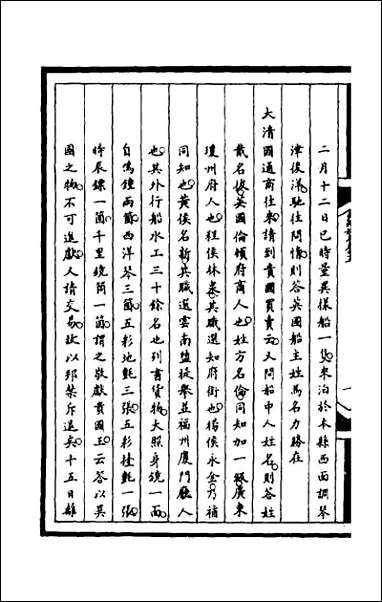 二月十二日巳時量異樣船一隻來泊於本縣西面調琴
津後洋馳往問情則答英國船主姓馬名力勝在
大清國通商往來請到貴國買賣云又問船中人姓名則答姓
戴名拔英國倫頓府商人也姓方名倫同知加一級廣東
瓊州府人也程侯林泉其職選知府銜也楊侯永金乃補
同知也黃侯名新共職選雲南鹽提舉並福州廈門廳人
也其外行船水工三十餘名也列書貨物大照身鏡一面
自鳴鐘兩箇西洋琴三箇五彩地氈三張五彩掛氈一張
時辰鏢一箇千里鏡筒一箇謂之敬獻貴國王云答以異
國之物不可進獻人請交易故以邦禁斥退矣十五日離